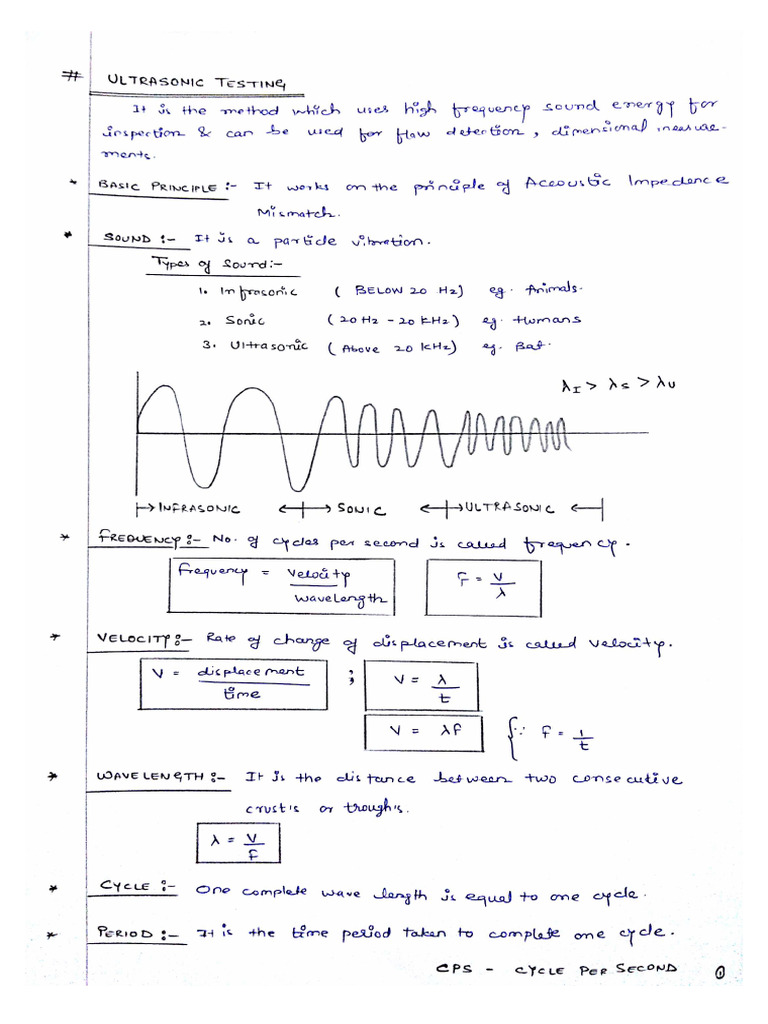 # ULTRASONIC TESTING
It is the method which uses high frequency sound energy for
inspection & can be used for flow detection, dimensional measure-
ments.
* BASIC PRINCIPLE :- It works on the principle of Accoustic Impedence
Mismatch.
* SOUND :- It is a particle vibration.
Types of Sound:-
1. Infrasonic ( BELOW 20 Hz) eg. Animals.
2. Sonic (20 Hz - 20 KHz) eg. Humans
3. Ultrasonic (Above 20 KHz) eg. Bat.
λI > λs > λU
INFRASONIC SONIC ULTRASONIC
* FREQUENCY :- No. of cycles per second is called frequency.
Frequency = Velocity / Wavelength F = V / λ
* VELOCITY :- Rate of change of displacement is called velocity.
V = displacement / time ; V = λ / t
V = λF { ∵ F = 1 / t
* WAVELENGTH :- It is the distance between two consecutive
crust's or trough's.
λ = V / F
* CYCLE :- One complete wave length is equal to one cycle.
* PERIOD :- It is the time period taken to complete one cycle.
CPS - CYCLE PER SECOND ①